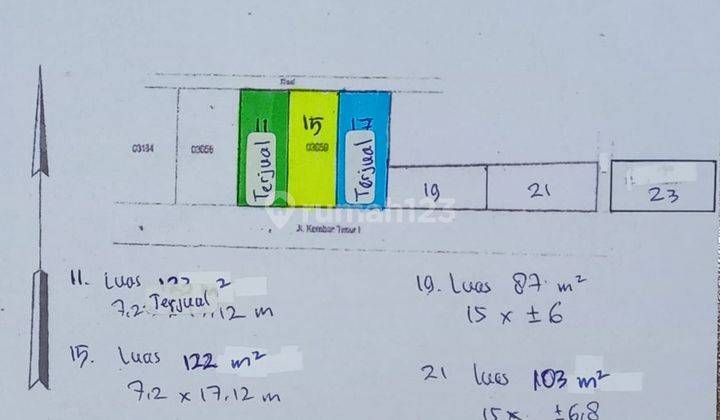 11
15
17
Terjual
Terjual
03134
03056
03059
19
21
23
rumah123
Jl. Kembar Timur I
11. Luas
Terjual
7,2 12 m
15. Luas 122 m²
7,2 x 17,12 m
19. Luas 87 m²
15 x ± 6
21 luas 103 m²
15 x ± 6,8